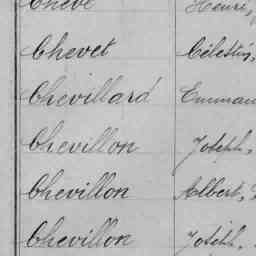 Chevé Henri,
Chevet Célestin,
Chevillard Emman
Chevillon Joseph,
Chevillon Albert,
Chevillon Joseph,